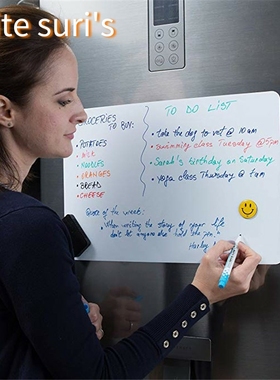 te suri's
GROCERIES
TO BUY:
POTATOES
MILK
NOODLES
ORANGES
BREAD
CHEESE
TO DO LIST
• Take the dog to vet @ 10 am
• swimming class Tuesday @ 5pm
• Sarah's birthday on Saturday
• Yoga class Thursday @ 7am
Quote of the week:
"When writing the story of your life
don't let anyone else hold the pen."
Harley